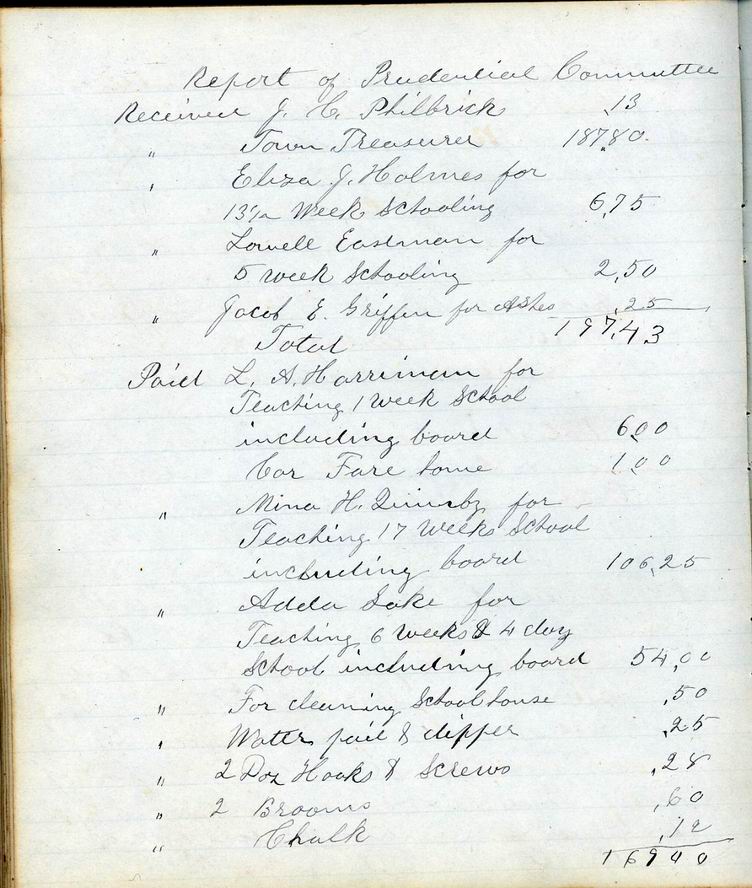 Report of Prudential Committee
Received J. C. Philbrick .13
" Town Treasurer 187,80.
" Eliza J. Holmes for
13 1/2 Week Schooling 6,75
" Lowell Eastman for
5 week Schooling 2,50
" Jacob E. Griffin for Ashes ,25
Total 197,43
Paid L. A. Harriman for
Teaching 1 Week School
including board 6,00
Car Fare home 1,00
" Mina H. Quimby for
Teaching 17 Weeks School
including board 106,25
" Adda Lake for
Teaching 6 weeks & 4 day
School including board 54,00
" For cleaning School house ,50
" Watter pail & dipper ,25
" 2 Doz Hooks & Screws ,28
" 2 Brooms ,60
" Chalk ,12